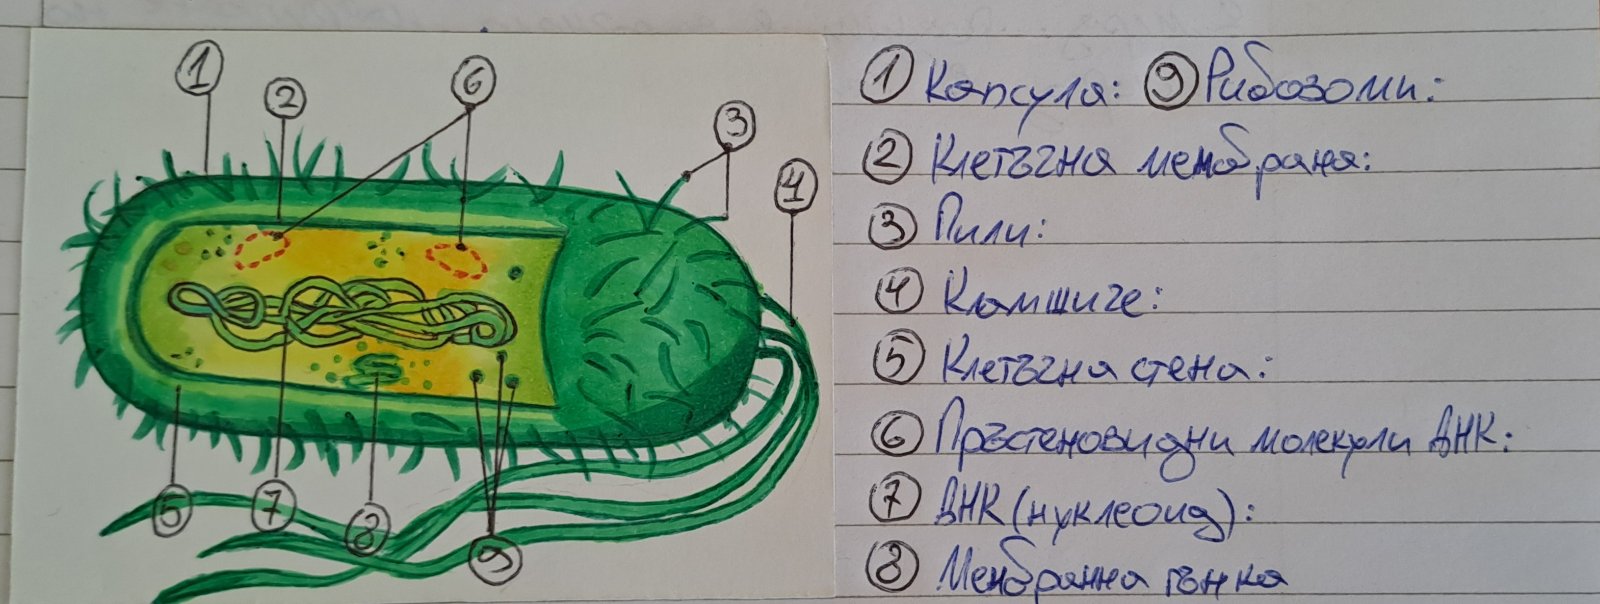 1
2
6
3
4
5
7
8
9
① Капсула: ⑨ Рибозоми:
② Клетъчна мембрана:
③ Пили:
④ Камшиче:
⑤ Клетъчна стена:
⑥ Пръстеновидни молекули ДНК:
⑦ ДНК (нуклеоид):
⑧ Мембранна гънка